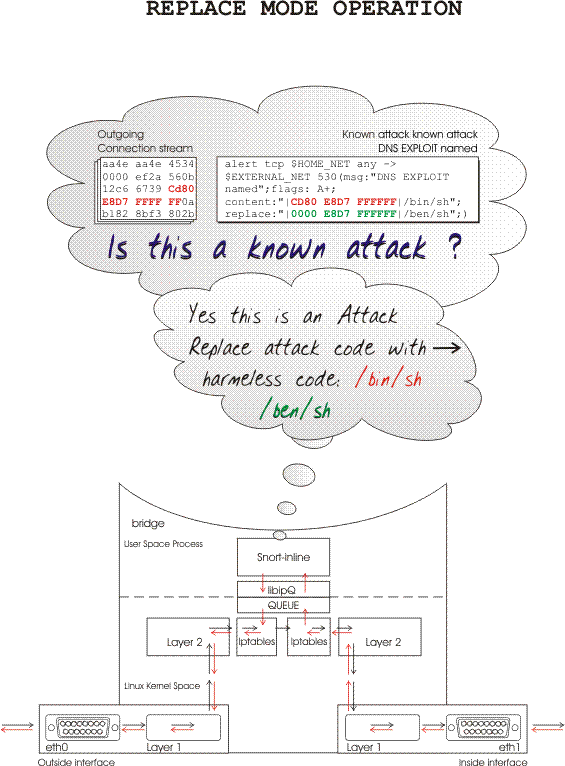 REPLACE MODE OPERATION
Outgoing
Connection stream
aa4e aa4e 4534
0000 ef2a 560b
12c6 6739 Cd80
E8D7 FFFF FF0a
b182 8bf3 802b
Known attack known attack
DNS EXPLOIT named
alert tcp $HOME_NET any ->
$EXTERNAL_NET 530(msg:"DNS EXPLOIT
named";flags: A+;
content:"|CD80 E8D7 FFFFFF|/bin/sh";
replace:"|0000 E8D7 FFFFFF|/ben/sh";)
Is this a known attack ?
Yes this is an Attack
Replace attack code with
harmeless code: /bin/sh
/ben/sh
bridge
User Space Process
Snort-inline
libipQ
QUEUE
Layer 2
Iptables
Iptables
Layer 2
Linux Kernel Space
eth0
Layer 1
Layer 1
eth1
Outside interface
Inside interface